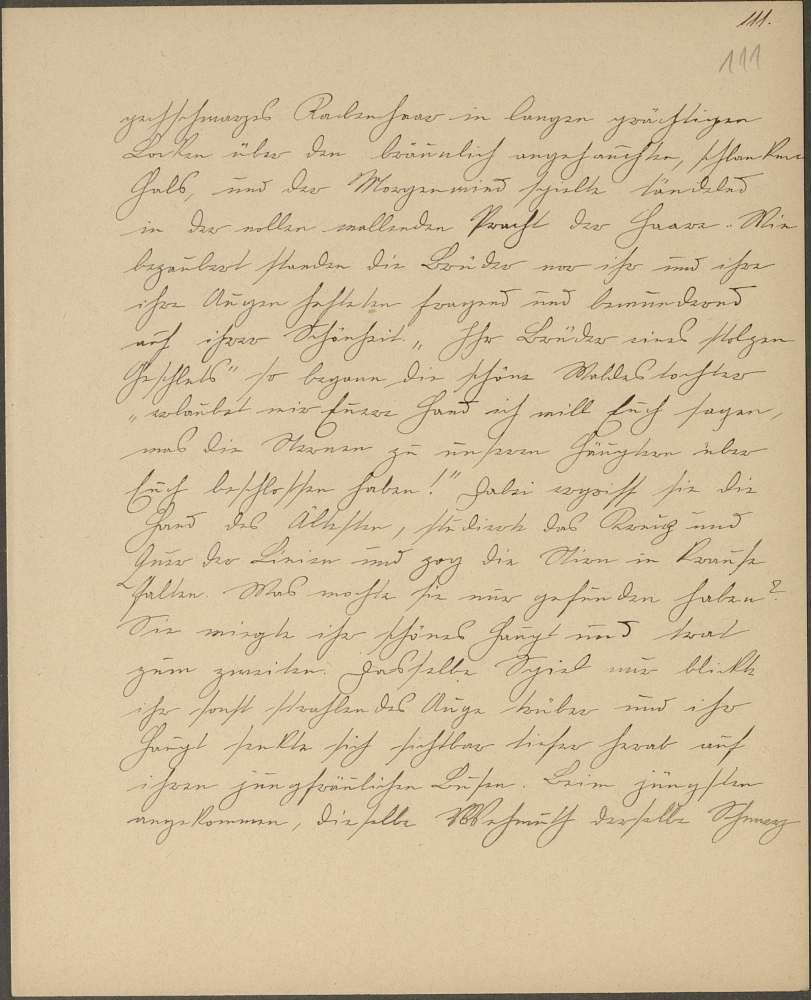 111.
111
pechschwarzes Rabenhaar in langen prächtigen
Locken über den bräunlich angehauchten, schlanken
Hals, und der Morgenwind spielte tändelnd
in der vollen wallenden Pracht der Haare. Wie
bezaubert standen die Brüder vor ihr und ihre
ihre Augen hefteten fragend und bewundernd
auf ihrer Schönheit. „Ihr Brüder eines stolzen
Geschlets" so begann die schöne Waldestochter
„erlaubet mir Euere Hand ich will Euch sagen,
was die Sternen zu unseren Häuptern über
Euch beschlossen haben!" Dabei ergriff sie die
Hand des Ältesten, studierte das Kreuz und
Quer der Linien und zog die Stirn in krause
Falten. Was mochte sie nur gefunden haben?
Sie wiegte ihr schönes Haupt und trat
zum zweiten. Dasselbe Spiel nur blickte
ihr sonst strahlendes Auge trüber und ihr
Haupt senkte sich sichtbar tiefer herab auf
ihren jungfräulichen Busen. Beim jüngsten
angekommen, dieselbe Wehmuth derselbe Schmerz